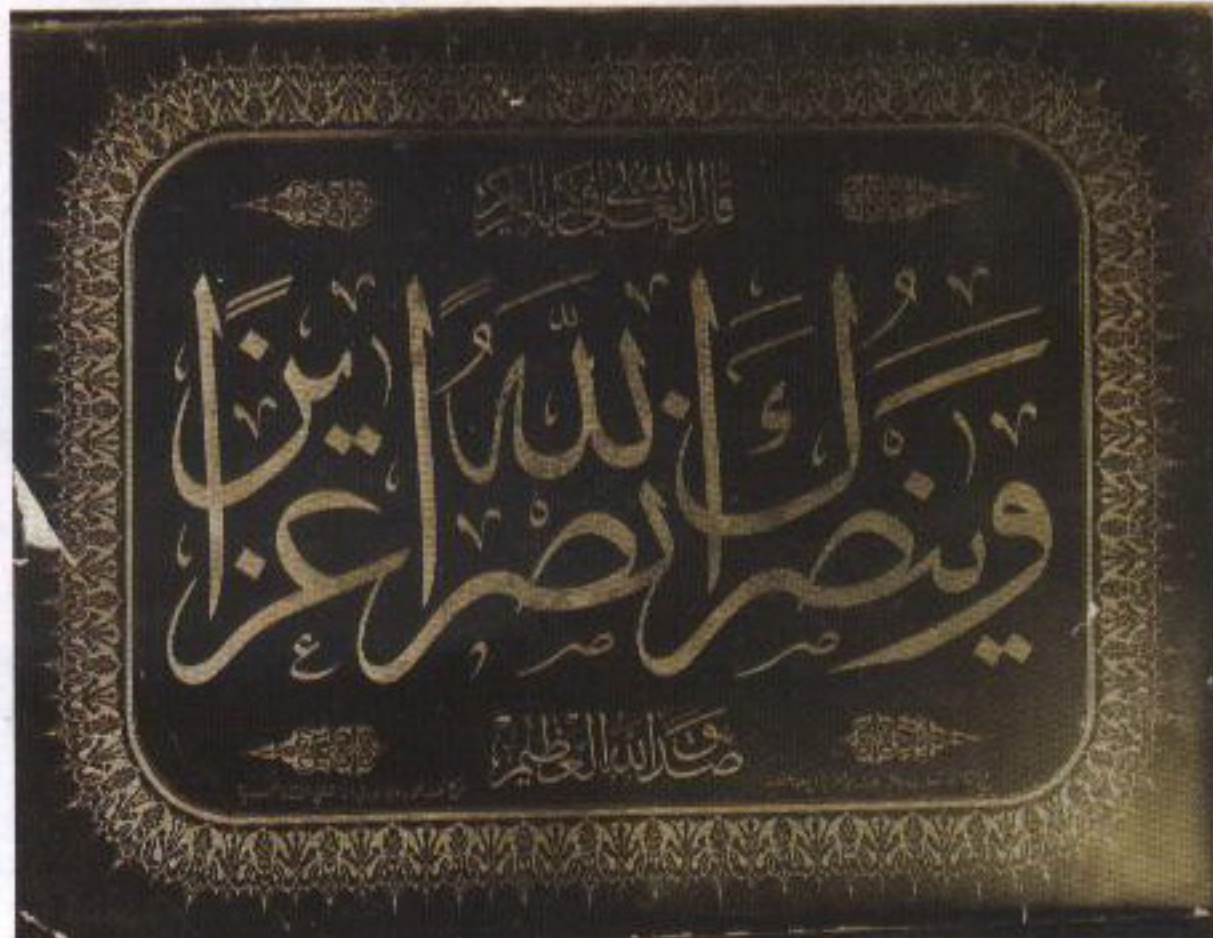 قال الله تعالى في كتابه الكريم
وَيَنْصُرَكَ اللَّهُ نَصْرًا عَزِيزًا
صدق الله العظيم